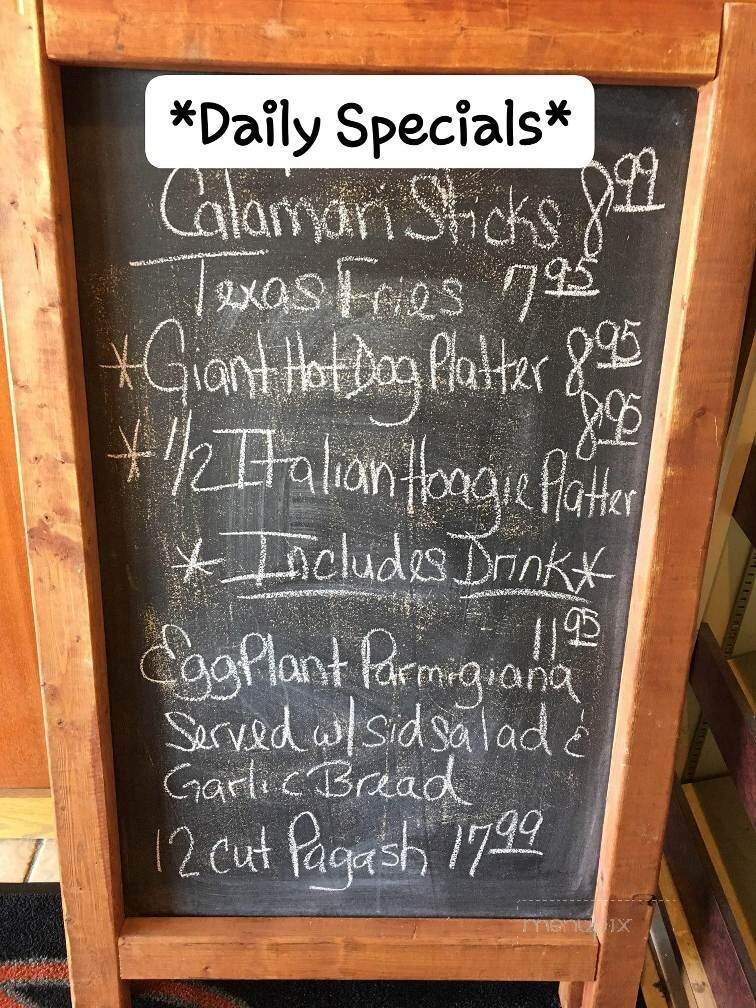 *Daily Specials*
Calamari Sticks 8.99
Texas Fries 7.95
*Giant Hot Dog Platter 8.95
8.95
*1/2 Italian Hoagie Platter
*Includes Drink*
11.95
EggPlant Parmigiana
Served w/ Sid Salad &
Garlic Bread
12 cut Pagash 17.99
menupix